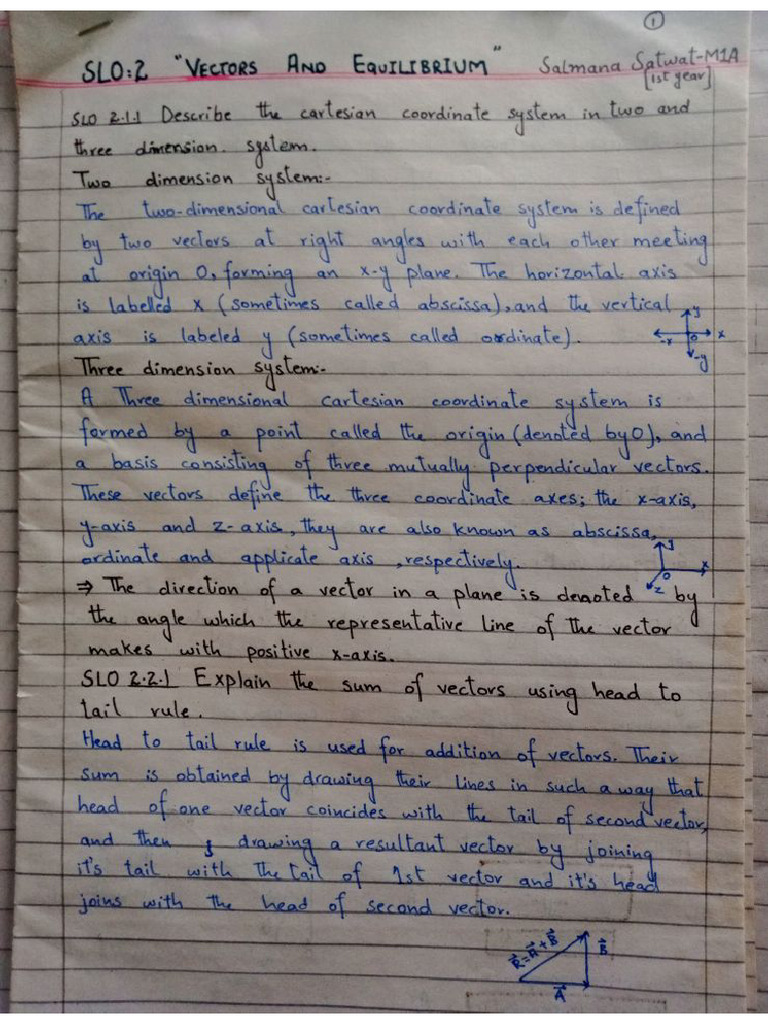 1
SLO:2 "VECTORS AND EQUILIBRIUM" Salmana Satwat-M1A
[1st year]
SLO 2.1.1 Describe the cartesian coordinate system in two and
three dimension. system.
Two dimension system:-
The two-dimensional cartesian coordinate system is defined
by two vectors at right angles with each other meeting
at origin O, forming an x-y plane. The horizontal axis
is labelled x (sometimes called abscissa), and the vertical
axis is labeled y (sometimes called ordinate).
y
-x O x
-y
Three dimension system:-
A Three dimensional cartesian coordinate system is
formed by a point called the origin (denoted by O), and
a basis consisting of three mutually perpendicular vectors.
These vectors define the three coordinate axes; the x-axis,
y-axis and z-axis, they are also known as abscissa,
ordinate and applicate axis, respectively.
y
O x
z
⇒ The direction of a vector in a plane is denoted by
the angle which the representative line of the vector
makes with positive x-axis.
SLO 2.2.1 Explain the sum of vectors using head to
tail rule.
Head to tail rule is used for addition of vectors. Their
sum is obtained by drawing their lines in such a way that
head of one vector coincides with the tail of second vector,
and then drawing a resultant vector by joining
it's tail with the tail of 1st vector and it's head
joins with the head of second vector.
R⃗ = A⃗ + B⃗
B⃗
A⃗